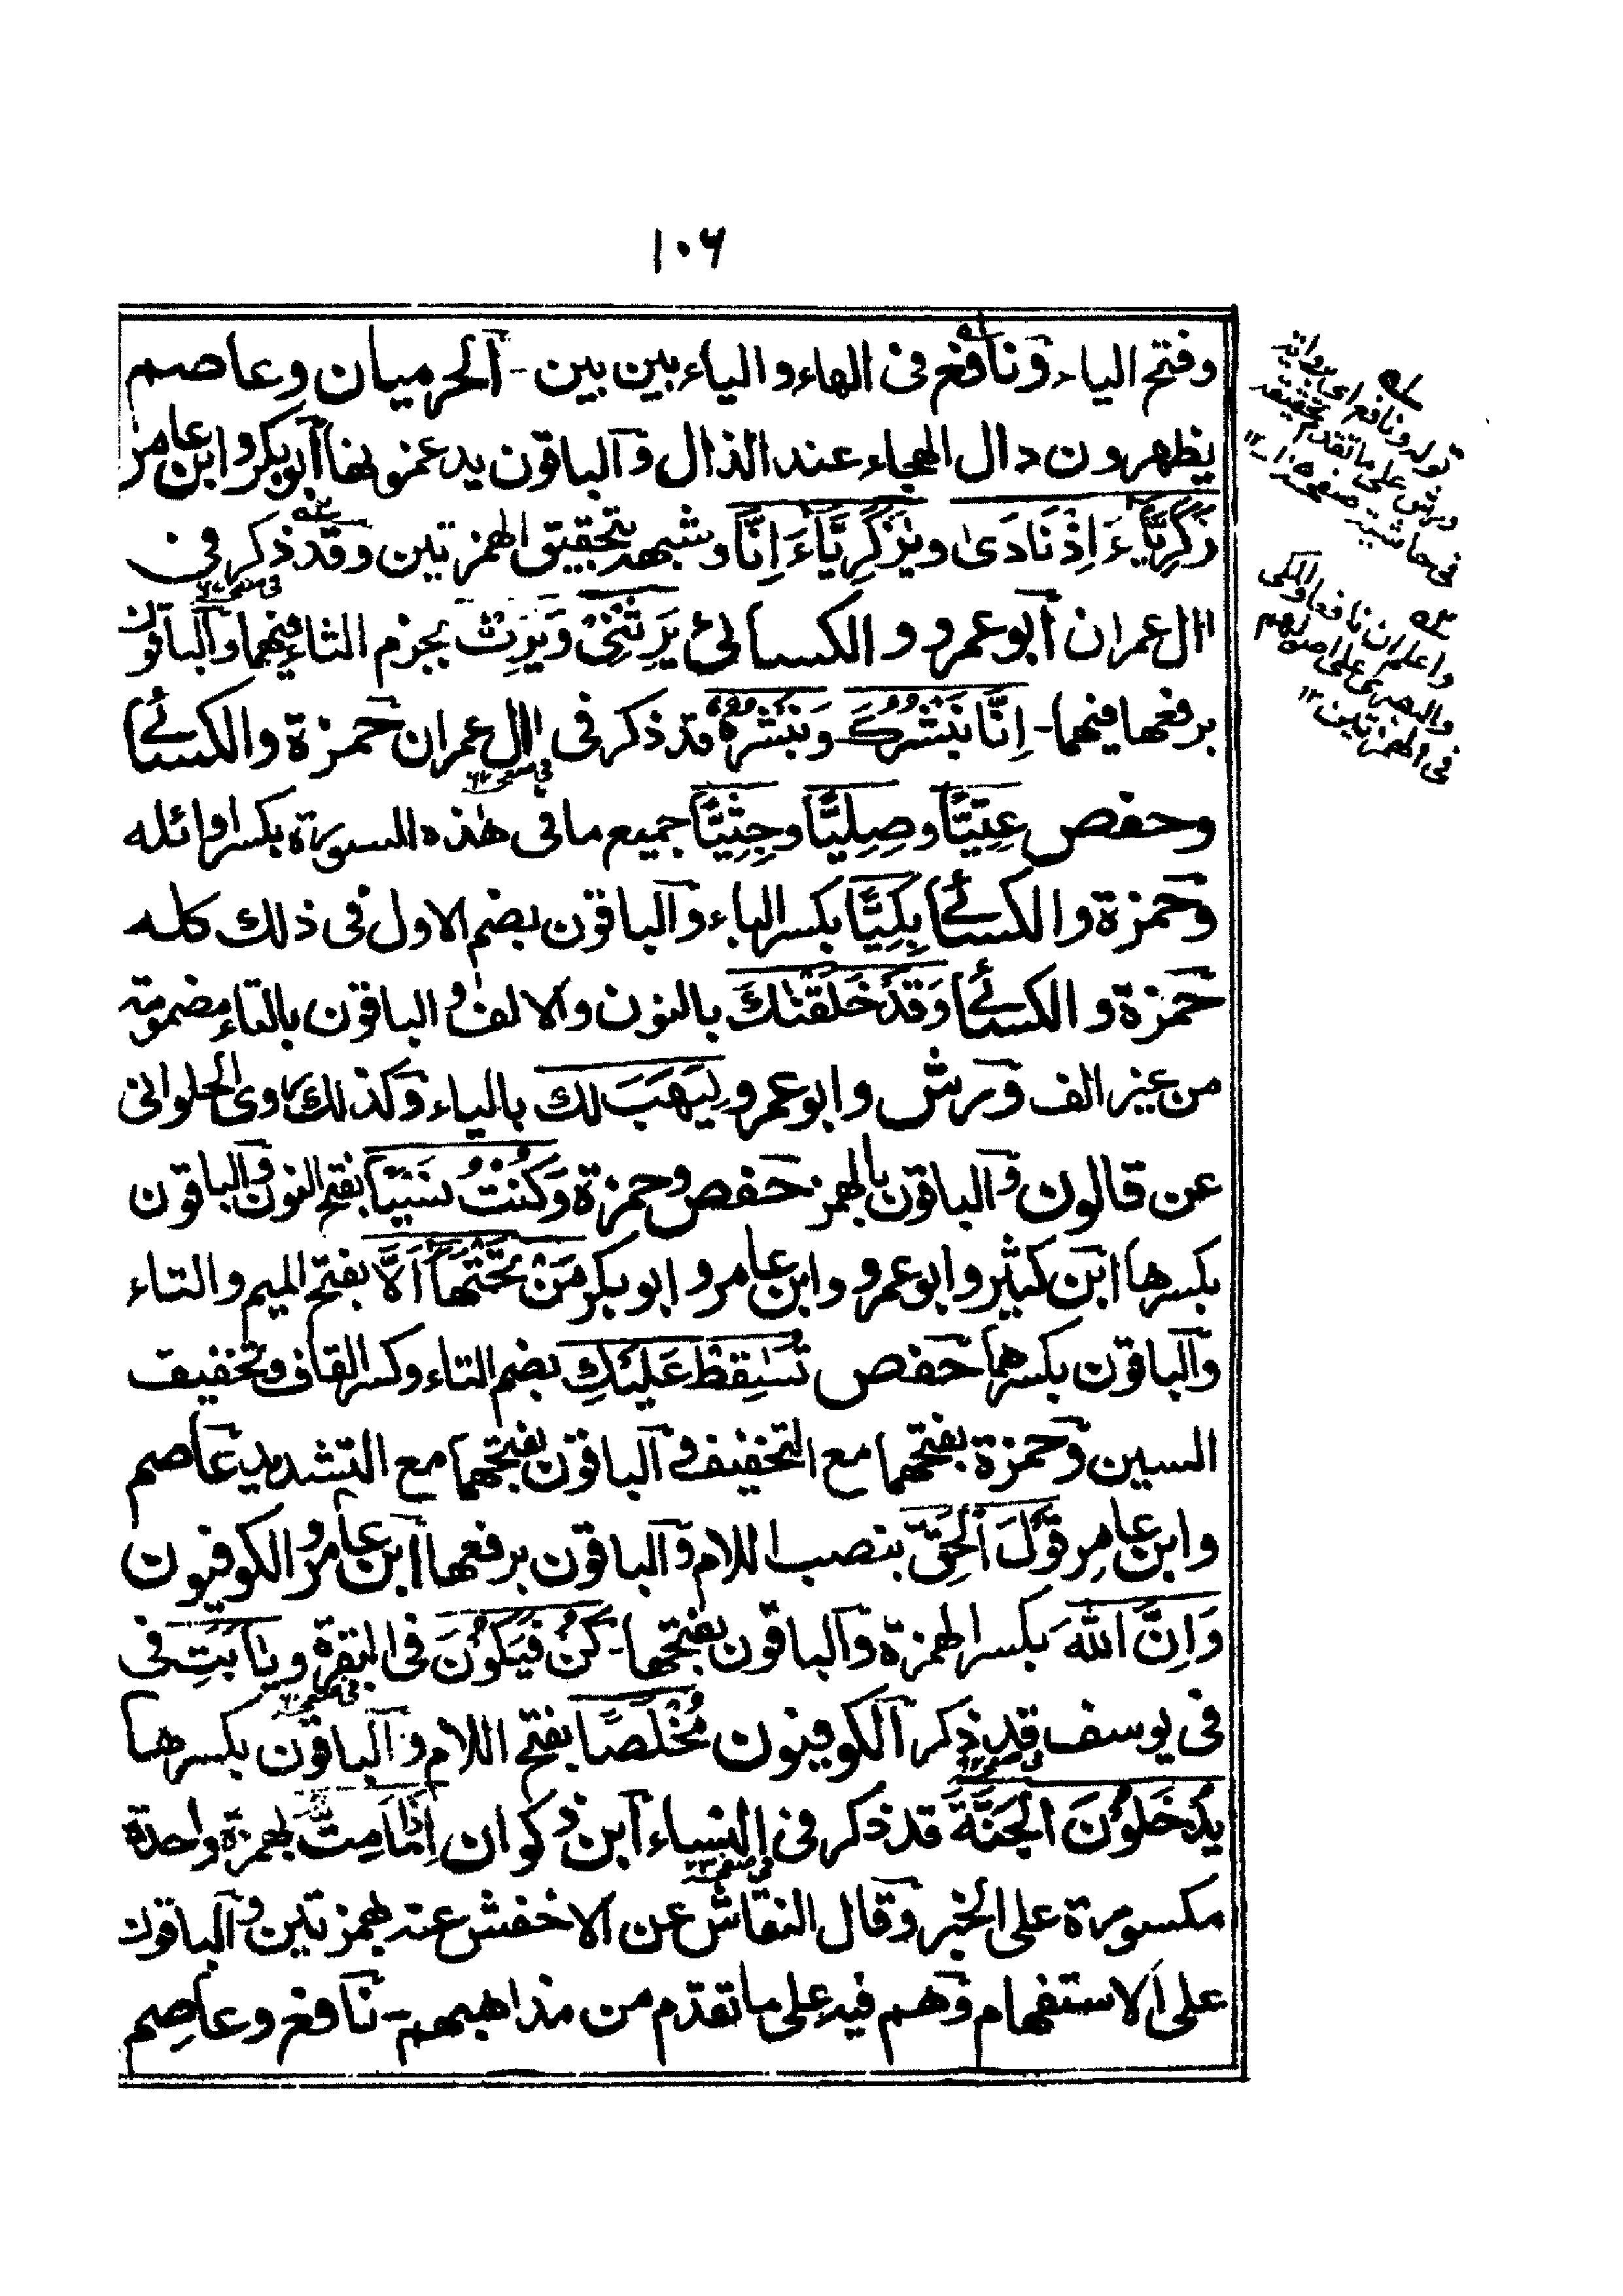 ١٠٦
وفتح الياء ونافع فى الهاء والياء بين بين - الحرميان وعاصم
يظهرون دال الهجاء عند الذال والباقون يدغمونها ابوبكر وابن عامر
زَكَرِيَّاءَ اِذْ نَادَىٰ ويٰزَكَرِيَّاءُ اِنَّا وشبهه بتحقيق الهمزتين وقد ذكر فى
اٰل عمران ابوعمرو والكسائى يَرِثْنِىْ وَيَرِثْ بجزم الثاء فيهما والباقون
برفعها فيهما - اِنَّا نُبَشِّرُكَ وَنُبَشِّرُهُ قد ذكر فى اٰل عمران حمزة والكسائى
وحفص عِتِيًّا وصِلِيًّا وجِثِيًّا جميع ما فى هٰذه السورة بكسر اوائله
وحمزة والكسائى بِكِيًّا بكسر الباء والباقون بضم الاول فى ذلك كله
حمزة والكسائى وَقَدْ خَلَقْنٰكَ بالنون والالف والباقون بالتاء مضمومة
من غير الف ورش وابوعمرو لِيَهَبَ لك بالياء وكذلك روى الحلوانى
عن قالون والباقون بالهمز حفص وحمزة وَكُنْتُ نَسْيًا بفتح النون والباقون
بكسرها ابن كثير وابوعمرو وابن عامر و ابوبكر مَنْ تَحْتَهَا اَلَّا بفتح الميم والتاء
والباقون بكسرهما حفص تُسٰقِطْ عَلَيْكِ بضم التاء وكسر القاف وتخفيف
السين وحمزة بفتحهما مع التخفيف والباقون بفتحهما مع التشديد عاصم
وابن عامر قَوْلَ الْحَقِّ بنصب اللام والباقون برفعها ابن عامر والكوفيون
وَاِنَّ اللّٰهَ بكسر الهمزة والباقون بفتحها - كُنْ فَيَكُوْنَ فى البقرة ويٰاَبَتِ فى
فى يوسف قد ذكر الكوفيون مُخْلَصًا بفتح اللام والباقون بكسرها
يُدْخَلُوْنَ الْجَنَّةَ قد ذكر فى النساء ابن ذكوان اِذَا مَا مِتُّ بهمزة واحدة
مكسورة على الخبر وقال النقاش عن الاخفش عنه بهمزتين والباقون
على الاستفهام وهم فيه على ما تقدم من مذاهبهم - نافع وعاصم
قوله ونافع اى
ورش على ما تقدم تحقيقه
فى حاشية صفحة ١٢
واعلم ان نافعا والمكى
والبصرى على اصولهم
فى الهمزتين ١٢